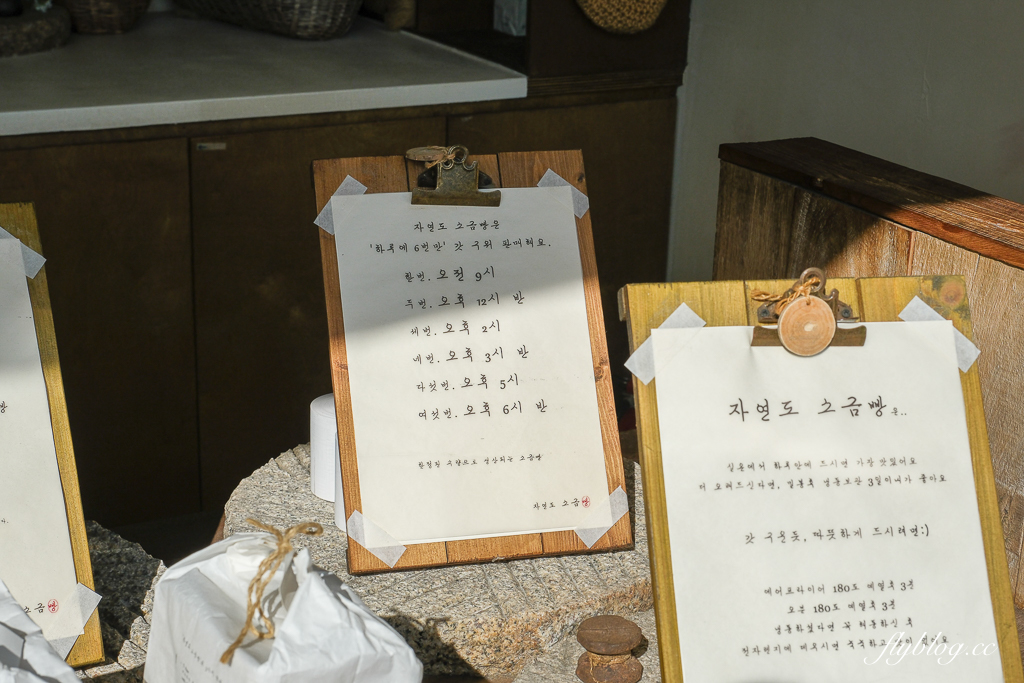 자연도 소금빵은
'하루에 6번만' 갓 구워 판매해요.
한번. 오전 9시
두번. 오후 12시 반
세번. 오후 2시
네번. 오후 3시 반
다섯번. 오후 5시
여섯번. 오후 6시 반
한정된 수량으로 생산되는 소금빵
자연도 소금빵
자연도 소금빵은..
실온에서 하루안에 드시면 가장 맛있어요
더 오래드신다면, 밀봉후 냉동보관 3일이내가 좋아요
갓 구운듯, 따뜻하게 드시려면:)
에어프라이어 180도 예열후 3분
오븐 180도 예열후 3분
냉동하셨다면 꼭 해동하신 후
전자렌지에 데우시면 축축하고
소금빵
flyblog.cc